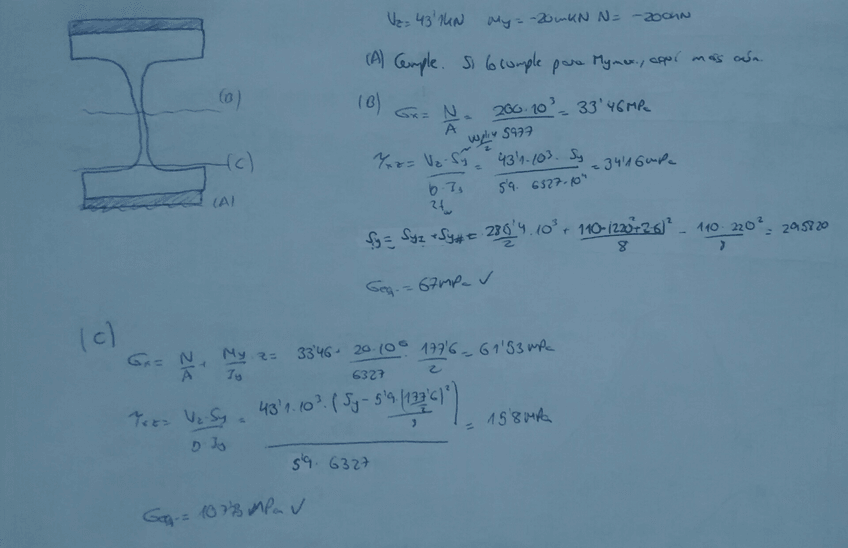 Vz = 43'1kN My = -20mkN N = -200kN
(A) Cumple. Si lo cumple para Mymax, aquí más aún.
(B)
(B) σx = N/A = 200·10³/5977 = 33'46 MPa
Wpl,y/2
τxz = Vz·Sy/b·Iy = 43'1·10³·Sy/5'9·6327·10⁴ = 34'16 MPa
2tw
(C)
(A)
Sy = Syz + Sy# = 285'4·10³/2 + 110·(220+2·6)²/8 - 110·220²/8 = 295820
σeq. = 67 MPa √
(C)
σx = N/A + My/Iy z = 33'46 + 20·10⁶/6327 · 177'6/2 = 61'53 MPa
τxz = Vz·Sy/b·Iy = 43'1·10³·(Sy - 5'9·(177'6/2)²/2)/5'9·6327 = 15'8 MPa
σeq. = 107'8 MPa √